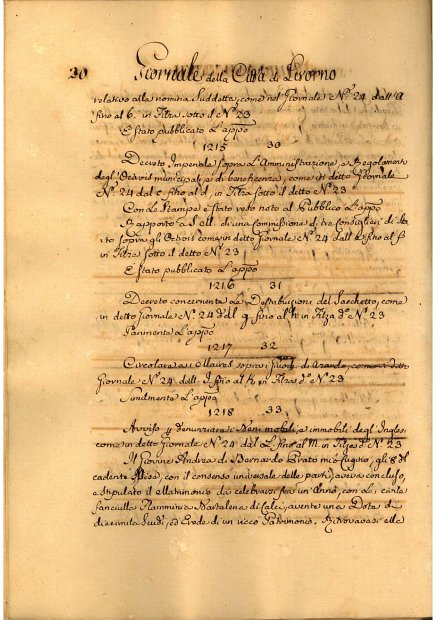 20 Giornale della Città di Livorno
relativo alla nomina Suddetta, come nel Giornale N.° 24 dall' A
fino al 6. in Filza sotto d.° N.° 23
È stato pubblicato L'appo
1215 30
Decreto Imperiale sopra L'Amministrazione, e Regolamenti
degl'Octrois municipali, e di beneficenza, come in detto Giornale
N.° 24 dal c. fino al d. in Filza sotto il detto N.° 23
Con Le Stampe è stato reso noto al Pubblico L'appo
Rapporto a S. di una Commissione di tre Consiglieri di Sta
to sopra gli Octrois come in detto Giornale N.° 24 dall' fino al f
in Filza sotto il detto N.° 23
È stato pubblicato L'appo
1216 31
Decreto concernente Le Distribuzioni del Sacchetto, come
in detto Giornale N.° 24 dal g fino al h in Filza d.° N.° 23
Parimente L'appo
1217 32
Circolare ai Maires sopra i di come in detto
Giornale N.° 24 dall' I fino al K in Filza d.° N.° 23
Similmente L'appo
1218 33
Avviso p denunziare i Beni mobili, e immobili degl'Inglesi
come in detto Giornale N.° 24 dal L fino al M. in Filza d.° N.° 23
Il Giovine Andrea di Bernardo Prato mio Cugino, gli 8 del
cadente Mese, con il consenso universale delle parti, aveva concluso,
e stipulato il Matrimonio da celebrarsi fra un'Anno, con la
fanciulla Flamminia di Calci, avente una Dota di
diecimila Scudi, ed Erede di un ricco Patrimonio. Ritrovavasi elle